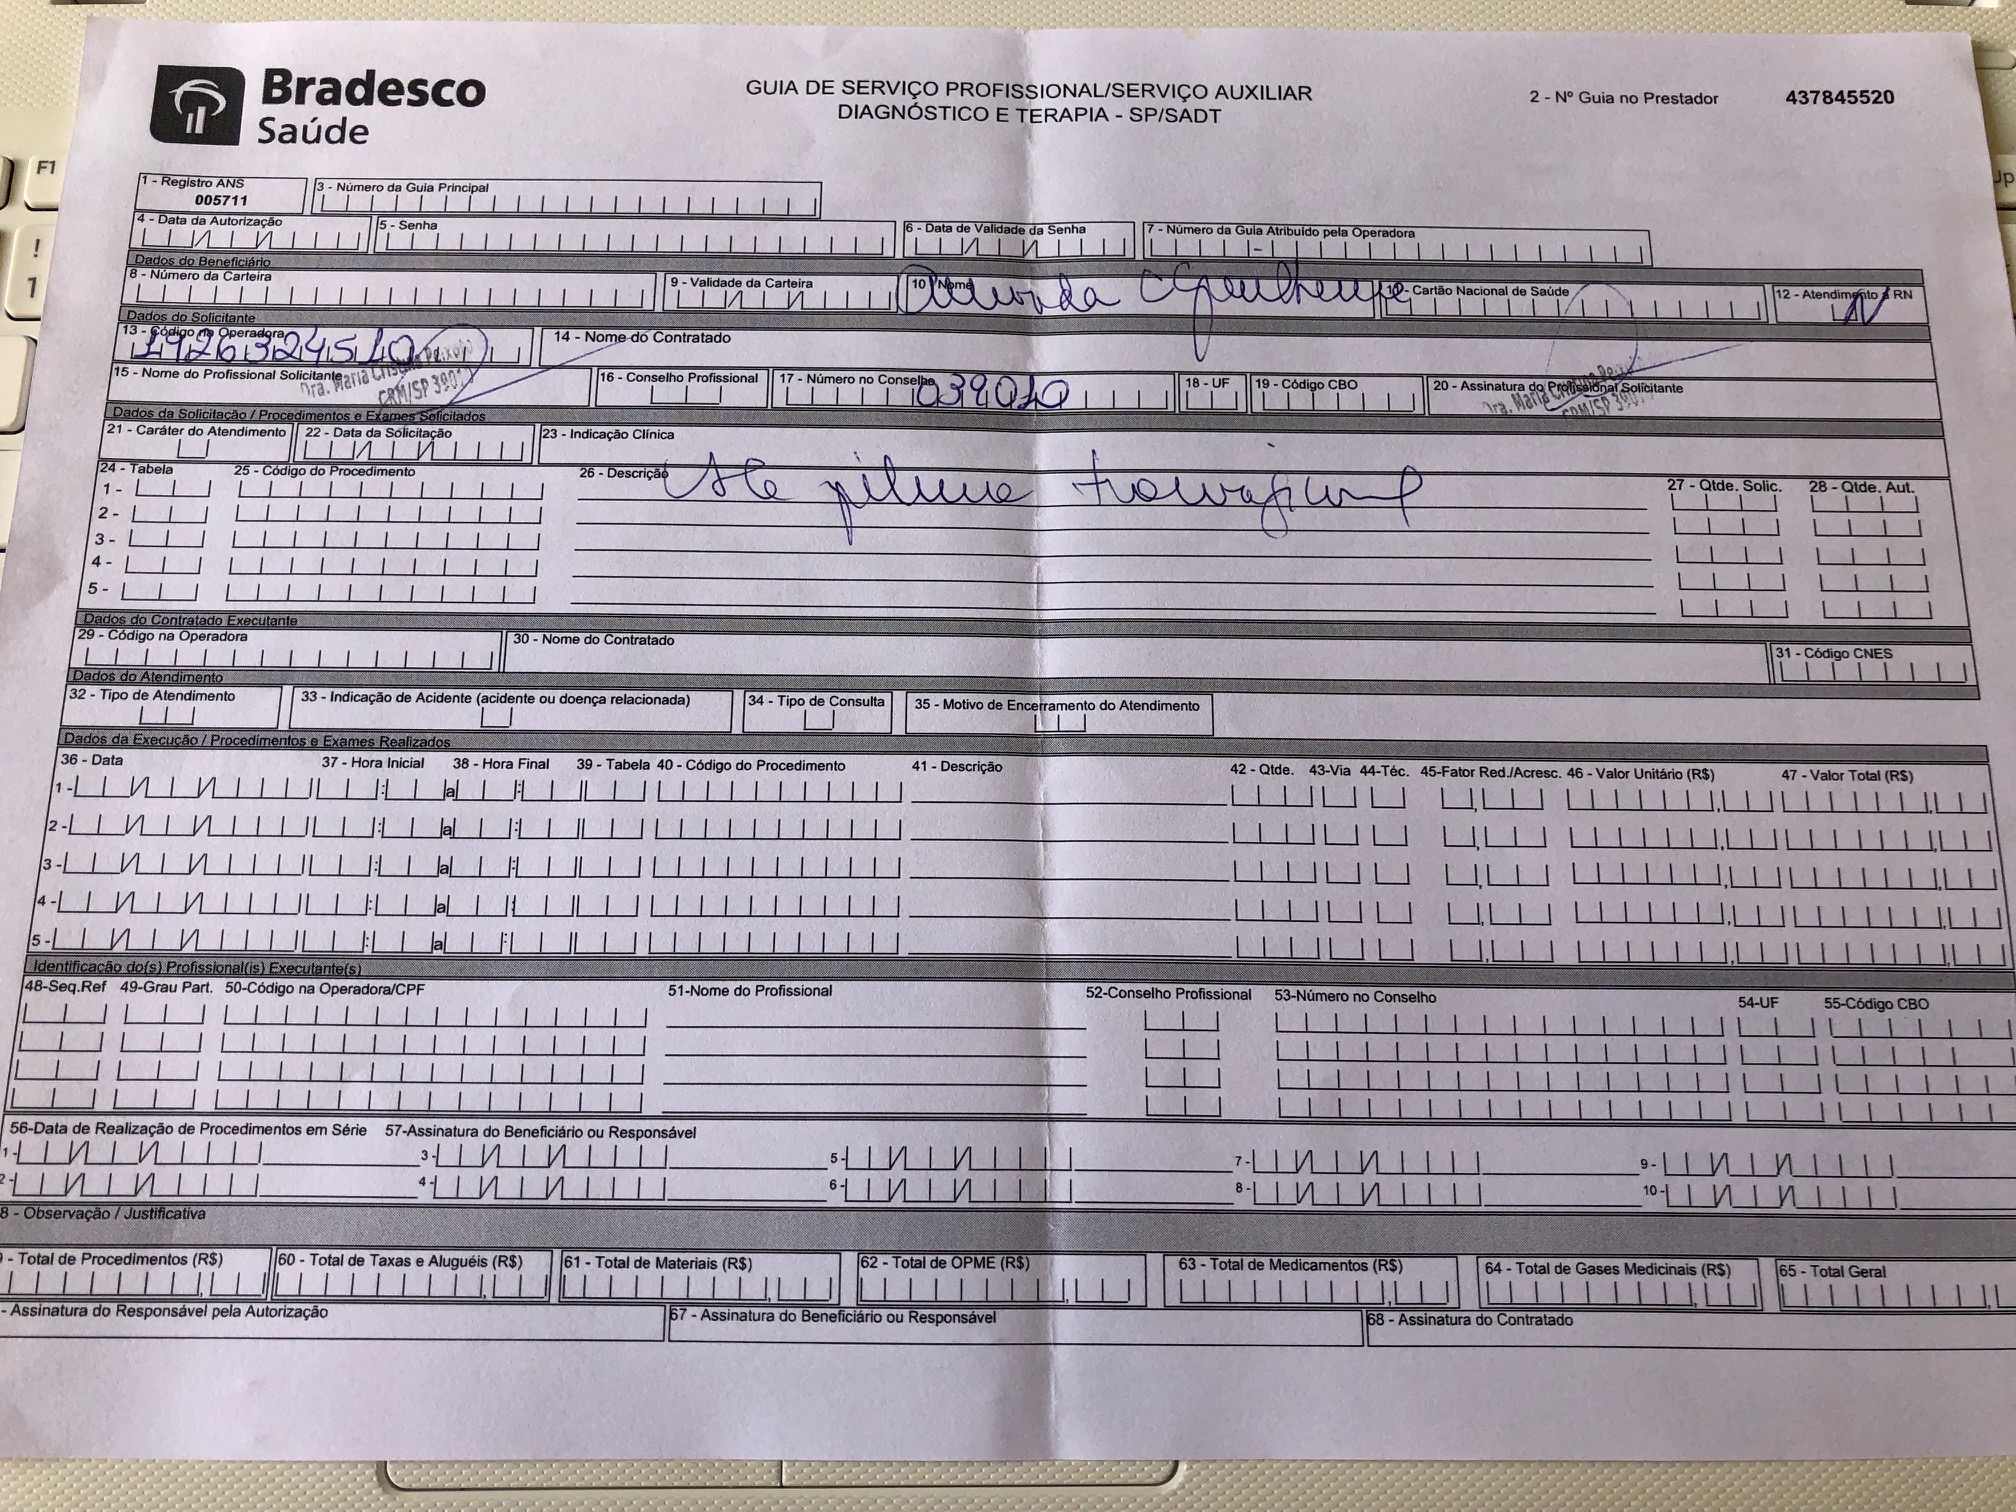 Bradesco
Saúde
GUIA DE SERVIÇO PROFISSIONAL/SERVIÇO AUXILIAR
DIAGNÓSTICO E TERAPIA - SP/SADT
2 - Nº Guia no Prestador 437845520
1 - Registro ANS
005711
3 - Número da Guia Principal
4 - Data da Autorização
5 - Senha
6 - Data de Validade da Senha
7 - Número da Guia Atribuído pela Operadora
Dados do Beneficiário
8 - Número da Carteira
9 - Validade da Carteira
10 - Nome
- Cartão Nacional de Saúde
12 - Atendimento a RN
N
Dados do Solicitante
13 - Código na Operadora
14 - Nome do Contratado
15 - Nome do Profissional Solicitante
Dra. Maria Cristina Peixoto
CRM/SP
16 - Conselho Profissional
17 - Número no Conselho
039010
18 - UF
19 - Código CBO
20 - Assinatura do Profissional Solicitante
Dra. Maria Cristina
CRM/SP
Dados da Solicitação / Procedimentos e Exames Solicitados
21 - Caráter do Atendimento
22 - Data da Solicitação
23 - Indicação Clínica
24 - Tabela 25 - Código do Procedimento 26 - Descrição 27 - Qtde. Solic. 28 - Qtde. Aut.
1 -
2 -
3 -
4 -
5 -
Dados do Contratado Executante
29 - Código na Operadora
30 - Nome do Contratado
31 - Código CNES
Dados do Atendimento
32 - Tipo de Atendimento
33 - Indicação de Acidente (acidente ou doença relacionada)
34 - Tipo de Consulta
35 - Motivo de Encerramento do Atendimento
Dados da Execução / Procedimentos e Exames Realizados
36 - Data 37 - Hora Inicial 38 - Hora Final 39 - Tabela 40 - Código do Procedimento 41 - Descrição 42 - Qtde. 43-Via 44-Téc. 45-Fator Red./Acresc. 46 - Valor Unitário (R$) 47 - Valor Total (R$)
1 - a
2 - a
3 - a
4 - a
5 - a
Identificação do(s) Profissional(is) Executante(s)
48-Seq.Ref 49-Grau Part. 50-Código na Operadora/CPF 51-Nome do Profissional 52-Conselho Profissional 53-Número no Conselho 54-UF 55-Código CBO
56-Data de Realização de Procedimentos em Série 57-Assinatura do Beneficiário ou Responsável
1- 3- 5- 7- 9-
2- 4- 6- 8- 10-
8 - Observação / Justificativa
- Total de Procedimentos (R$)
60 - Total de Taxas e Aluguéis (R$)
61 - Total de Materiais (R$)
62 - Total de OPME (R$)
63 - Total de Medicamentos (R$)
64 - Total de Gases Medicinais (R$)
65 - Total Geral
- Assinatura do Responsável pela Autorização
67 - Assinatura do Beneficiário ou Responsável
68 - Assinatura do Contratado
F1
!
1